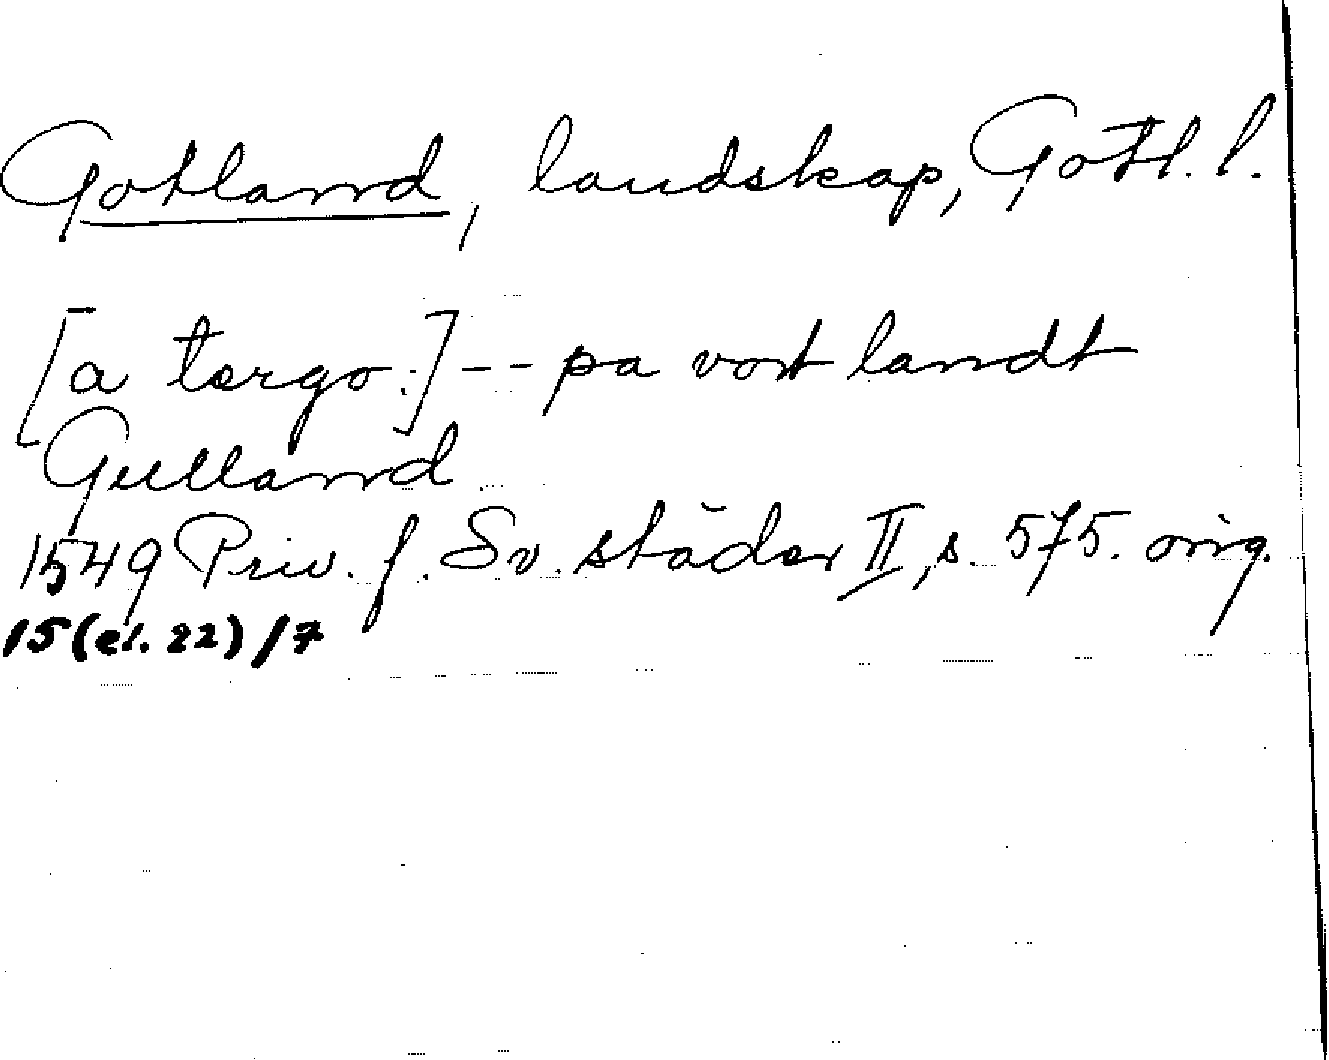 Gotland, landskap, Gotl. l.
[a tergo:] -- pa vort landt
Gulland
1549 Priv. f. Sv. städer II, s. 575. orig.
15 (el. 22)/7